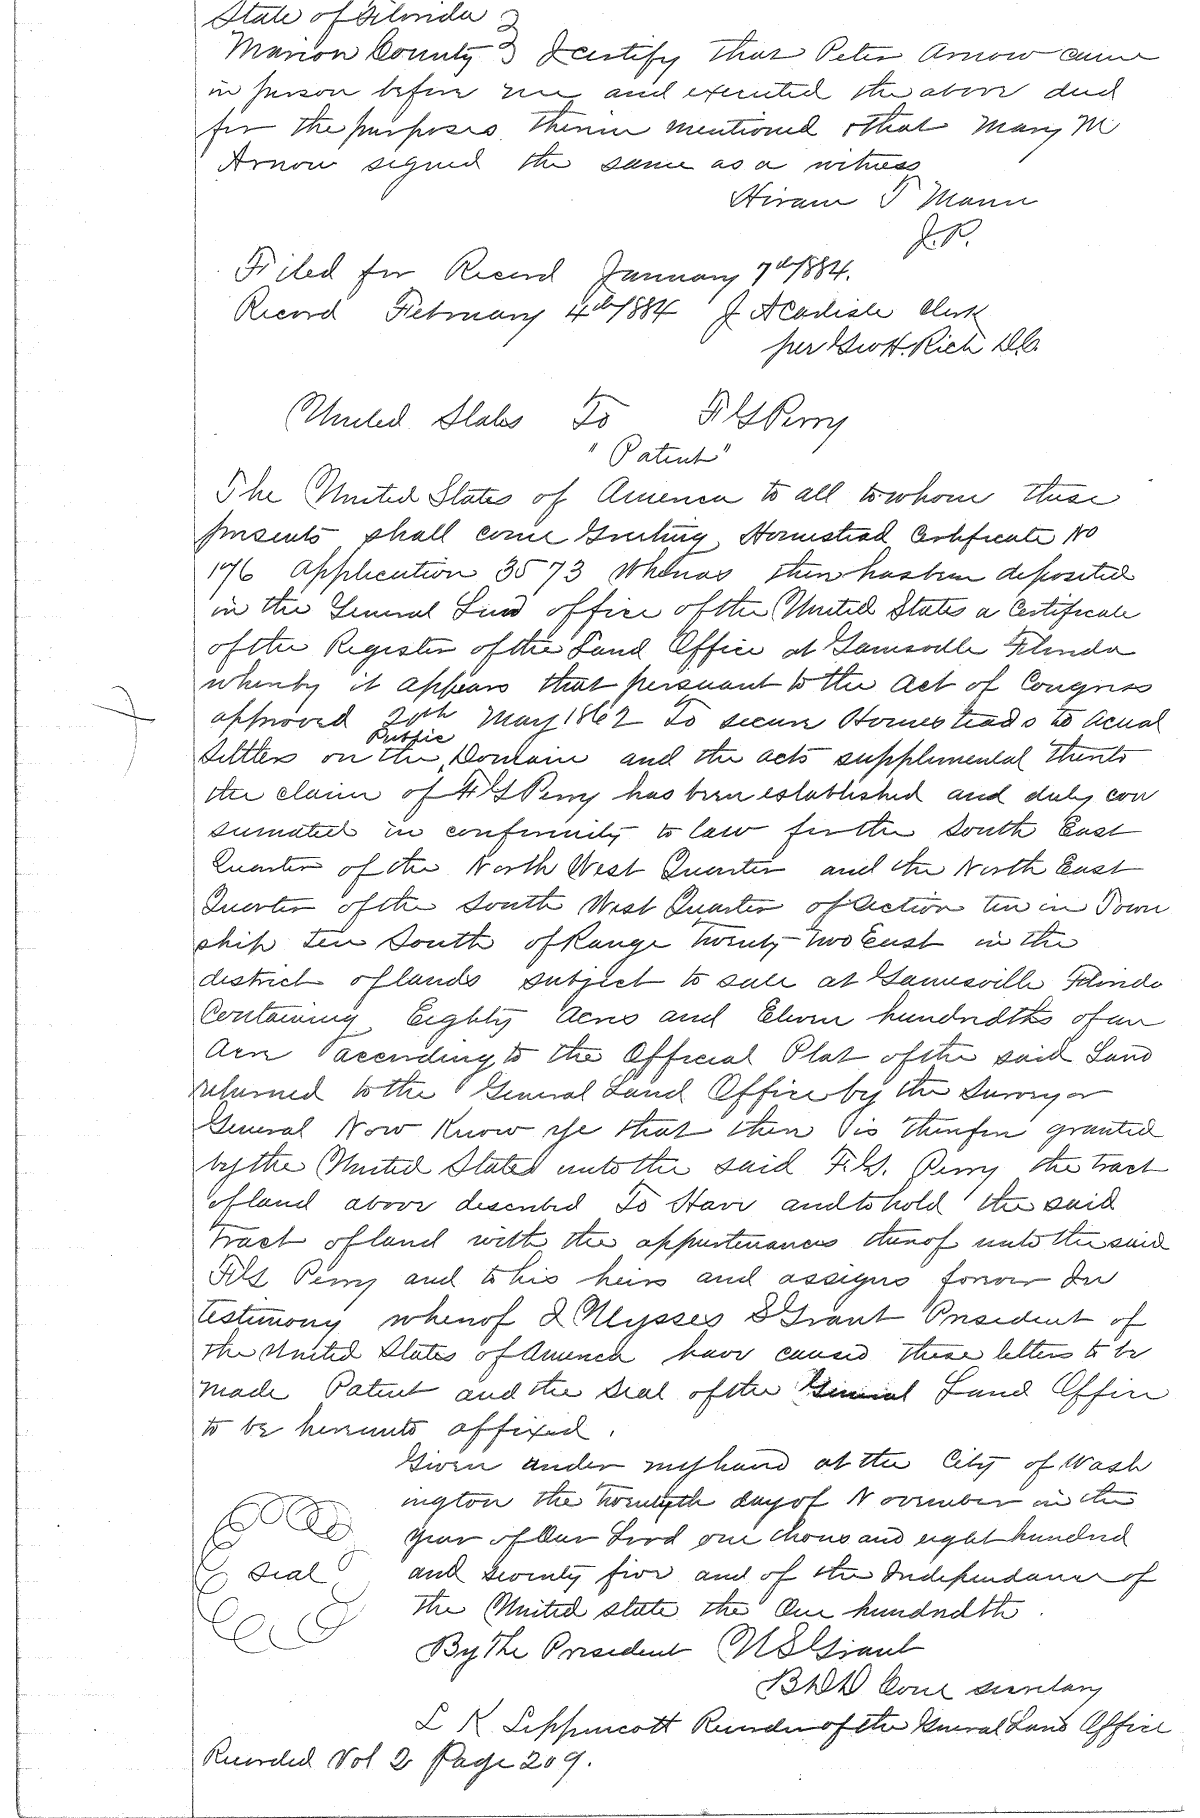 State of Florida }
Marion County } I certify that Peter Arnow came
in person before me and executed the above deed
for the purposes therein mentioned & that Mary M
Arnow signed the same as a witness
Hiram T Mann
J.P.
Filed for Record January 7th/884.
Record February 4th/884 J A Carlisle Clerk
per Geo H. Rich D.C.
United States To F G Perry
"Patent"
The United States of America to all to whom these
presents shall come Greeting Homestead Certificate No
176 Application 3573 Whereas there has been deposited
in the General Land office of the United States a Certificate
of the Register of the Land Office at Gainesville Florida
whereby it appears that persuant to the Act of Congress
approved 20th May 1862 To secure Homesteads to acual
Settlers on the Public Domain and the acts supplemental thereto
the claim of F G Perry has been established and duly con
sumated in conformity to law for the South East
Quarter of the North West Quarter and the North East
Quarter of the South West Quarter of Section ten in Town
ship ten South of Range Twenty-Two East in the
district of lands subject to sale at Gainesville Florida
Containing Eighty Acres and Eleven hundredths of an
Acre according to the Official Plat of the said Land
returned to the General Land Office by the Surveyor
General Now Know ye that there is therefore granted
by the United States unto the said F.G. Perry the tract
of land above described To Have and to hold the said
Tract of land with the appurtenances thereof unto the said
F G Perry and to his heirs and assigns forever In
testimony whereof I Ulysses S Grant President of
the United States of America have caused these letters to be
made Patent and the Seal of the General Land Office
to be hereunto affixed.
Given under my hand at the City of Wash
ington the twentyth day of November in the
Seal
year of Our Lord one thousand eight hundred
and seventy five and of the Independance of
the United state the One hundredth.
By The President U S Grant
By D D Cone secretary
L K Lippincott Recorder of the General Land Office
Recorded Vol 2 Page 209.